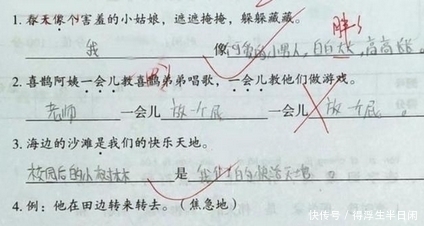 1. 春天像个害羞的小姑娘，遮遮掩掩，躲躲藏藏。
胖
我 像 可爱的小男人，白白大大，高高
2. 喜鹊阿姨一会儿教喜鹊弟弟唱歌，一会儿教他们做游戏。
老师 一会儿 放个屁 一会儿 放个屁 。
3. 海边的沙滩是我们的快乐天地。
校园后的小树林 是 我们 的快活天地 。
4. 例：他在田边转来转去。（焦急地）
快传号 / 得浮生半日闲